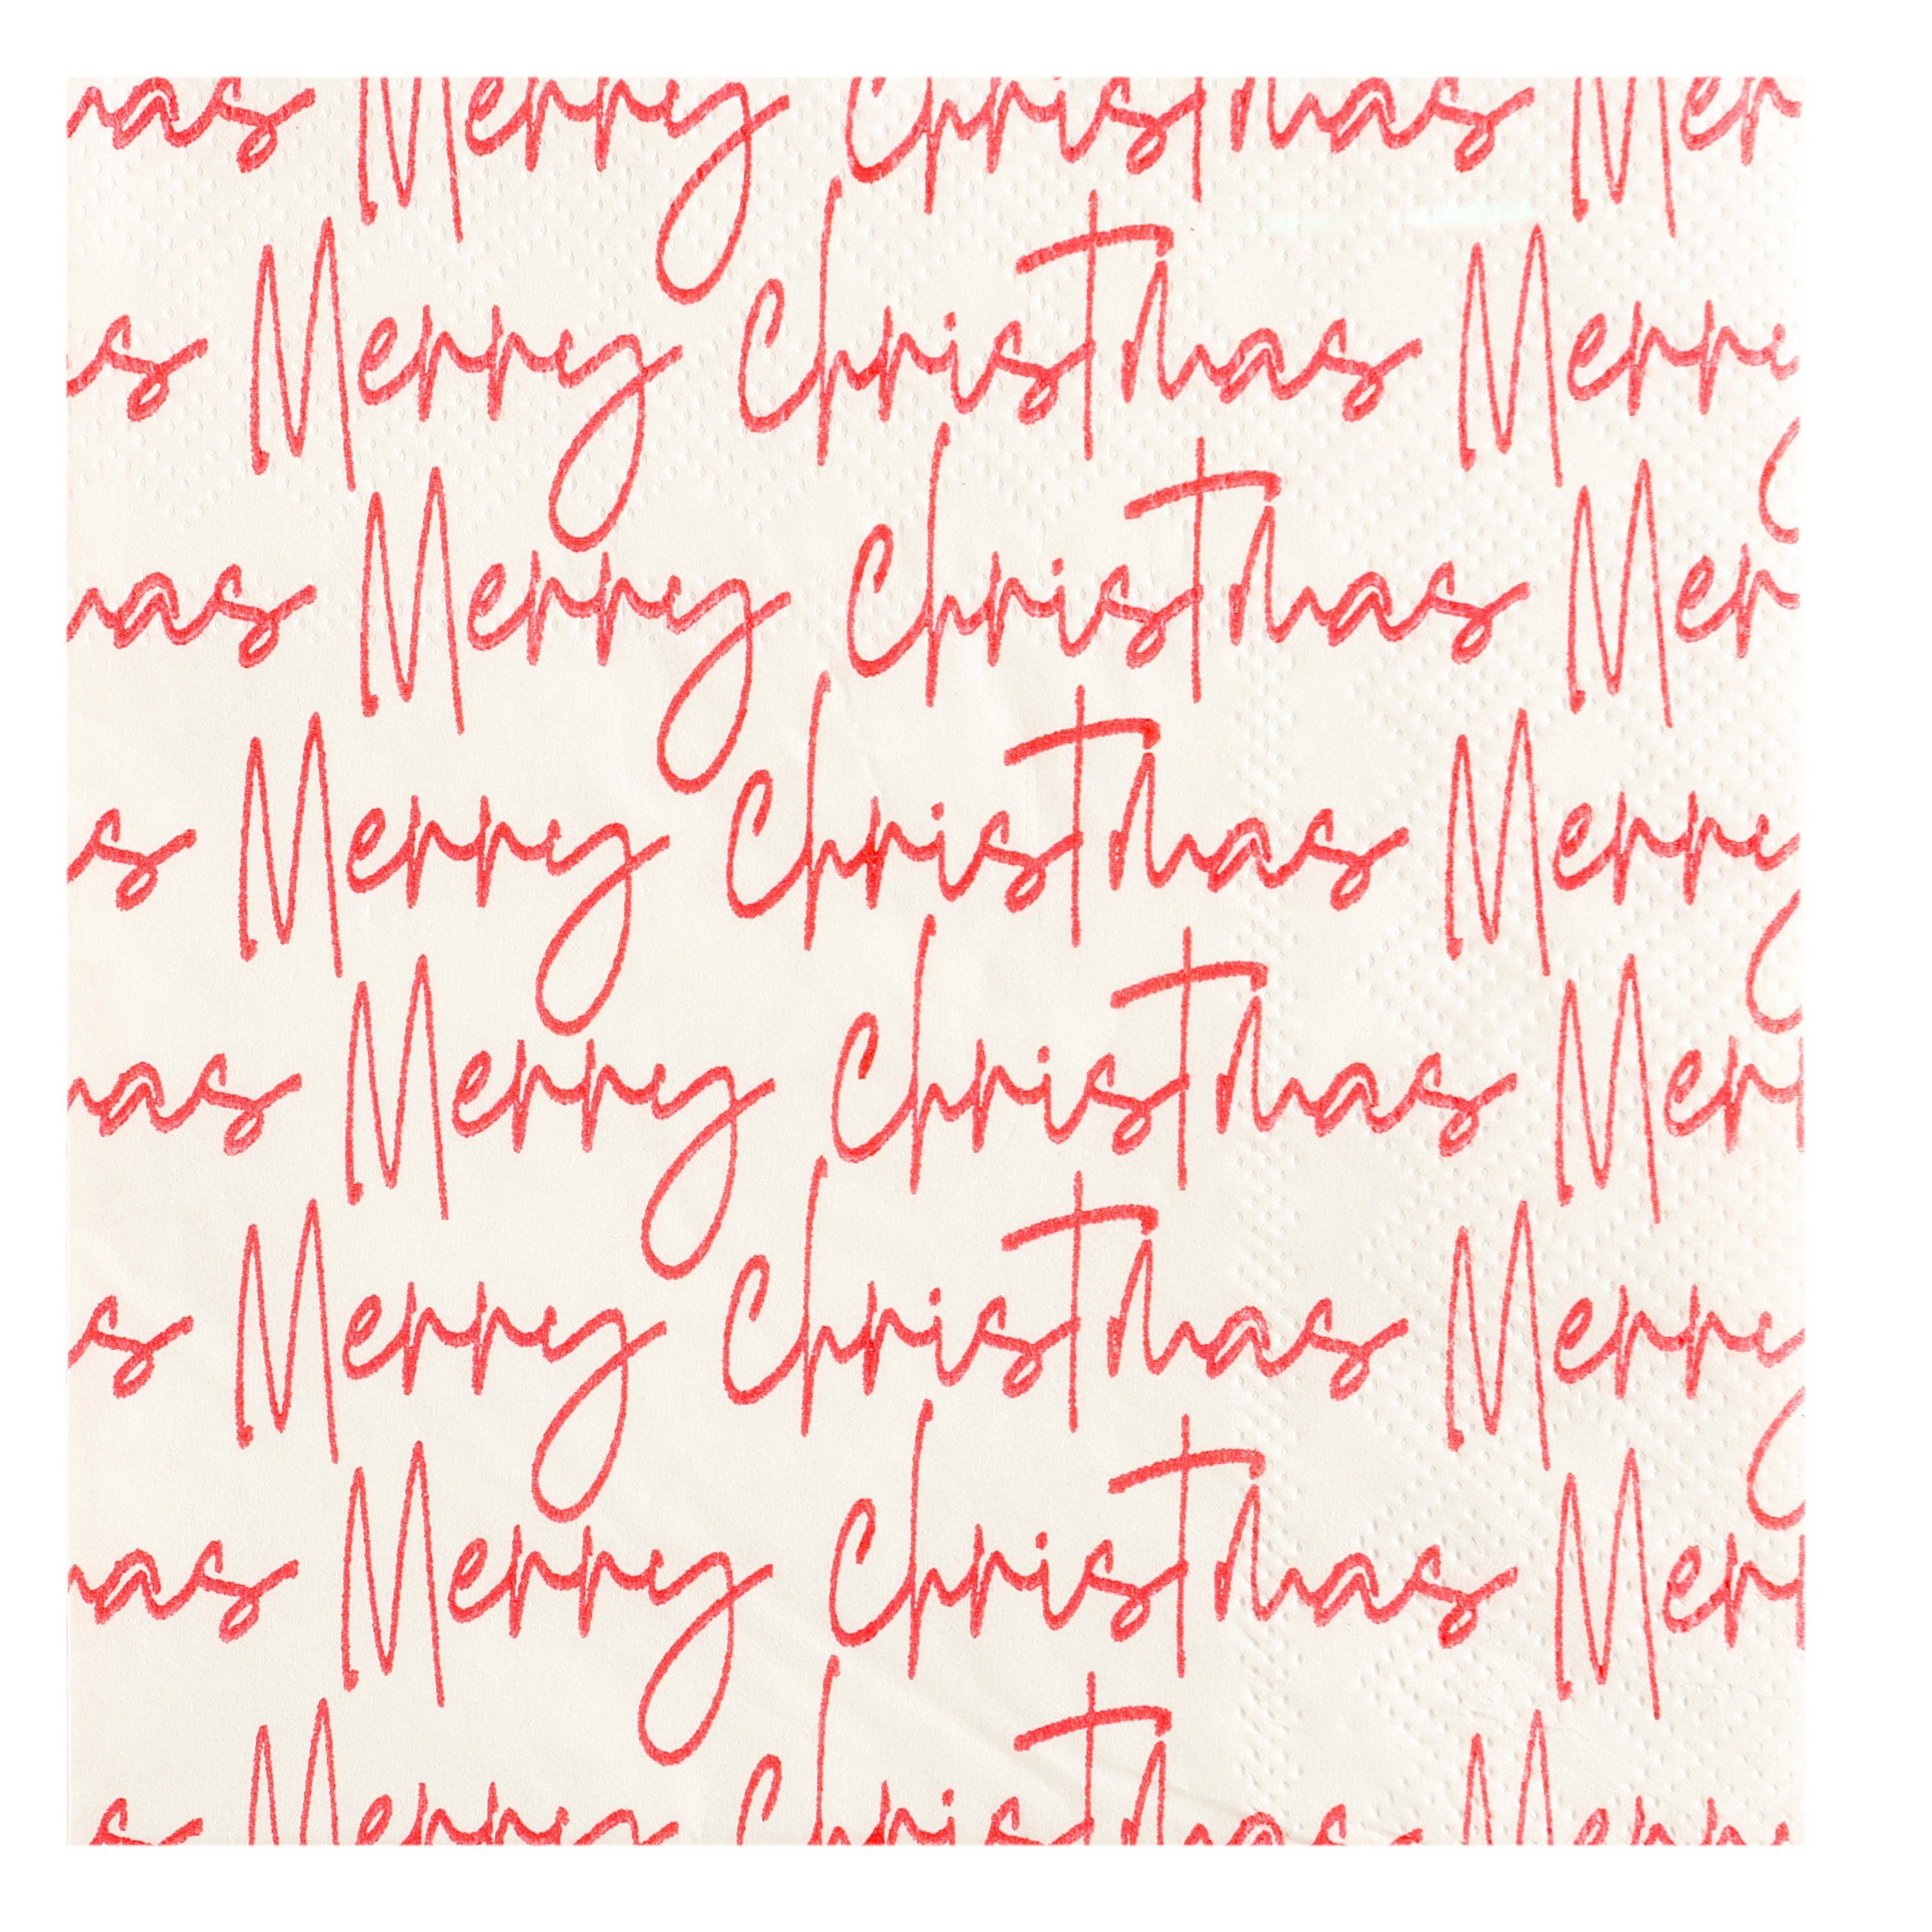 mas Merry Christmas Mer
as Merry Christmas Merry
mas Merry Christmas Mer
s Merry Christmas Merry
mas Merry Christmas Merr
s Merry Christmas Merry
mas Merry Christmas Merr
s Merry Christmas Merry